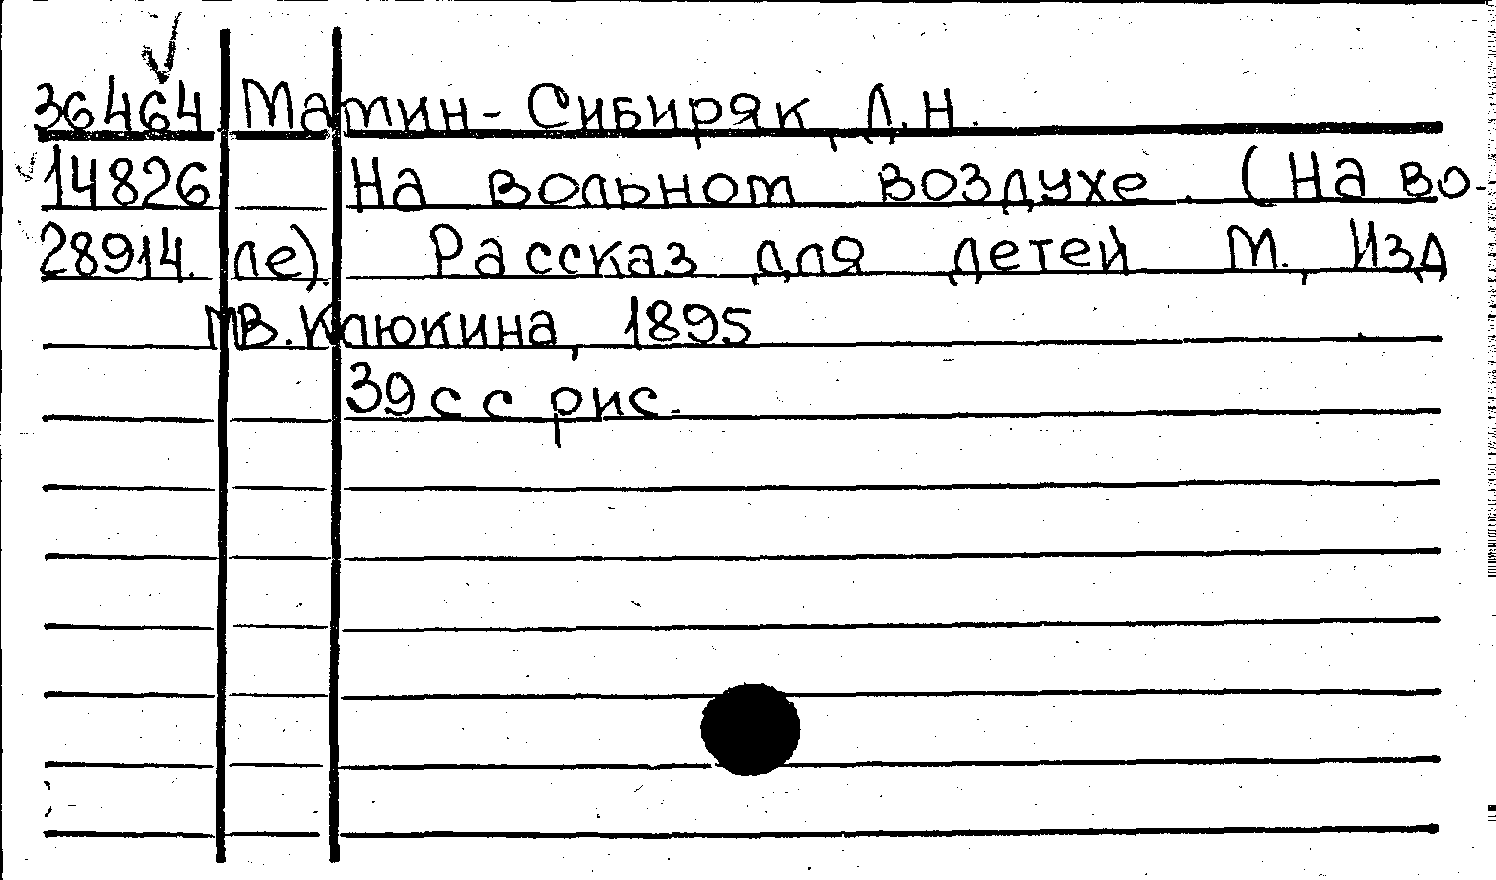 36464 Мамин-Сибиряк, Д.Н.
14826 На вольном воздухе. (На во-
28914. ле). Рассказ для детей М., Изд
МВ.Клюкина, 1895
39с с рис.